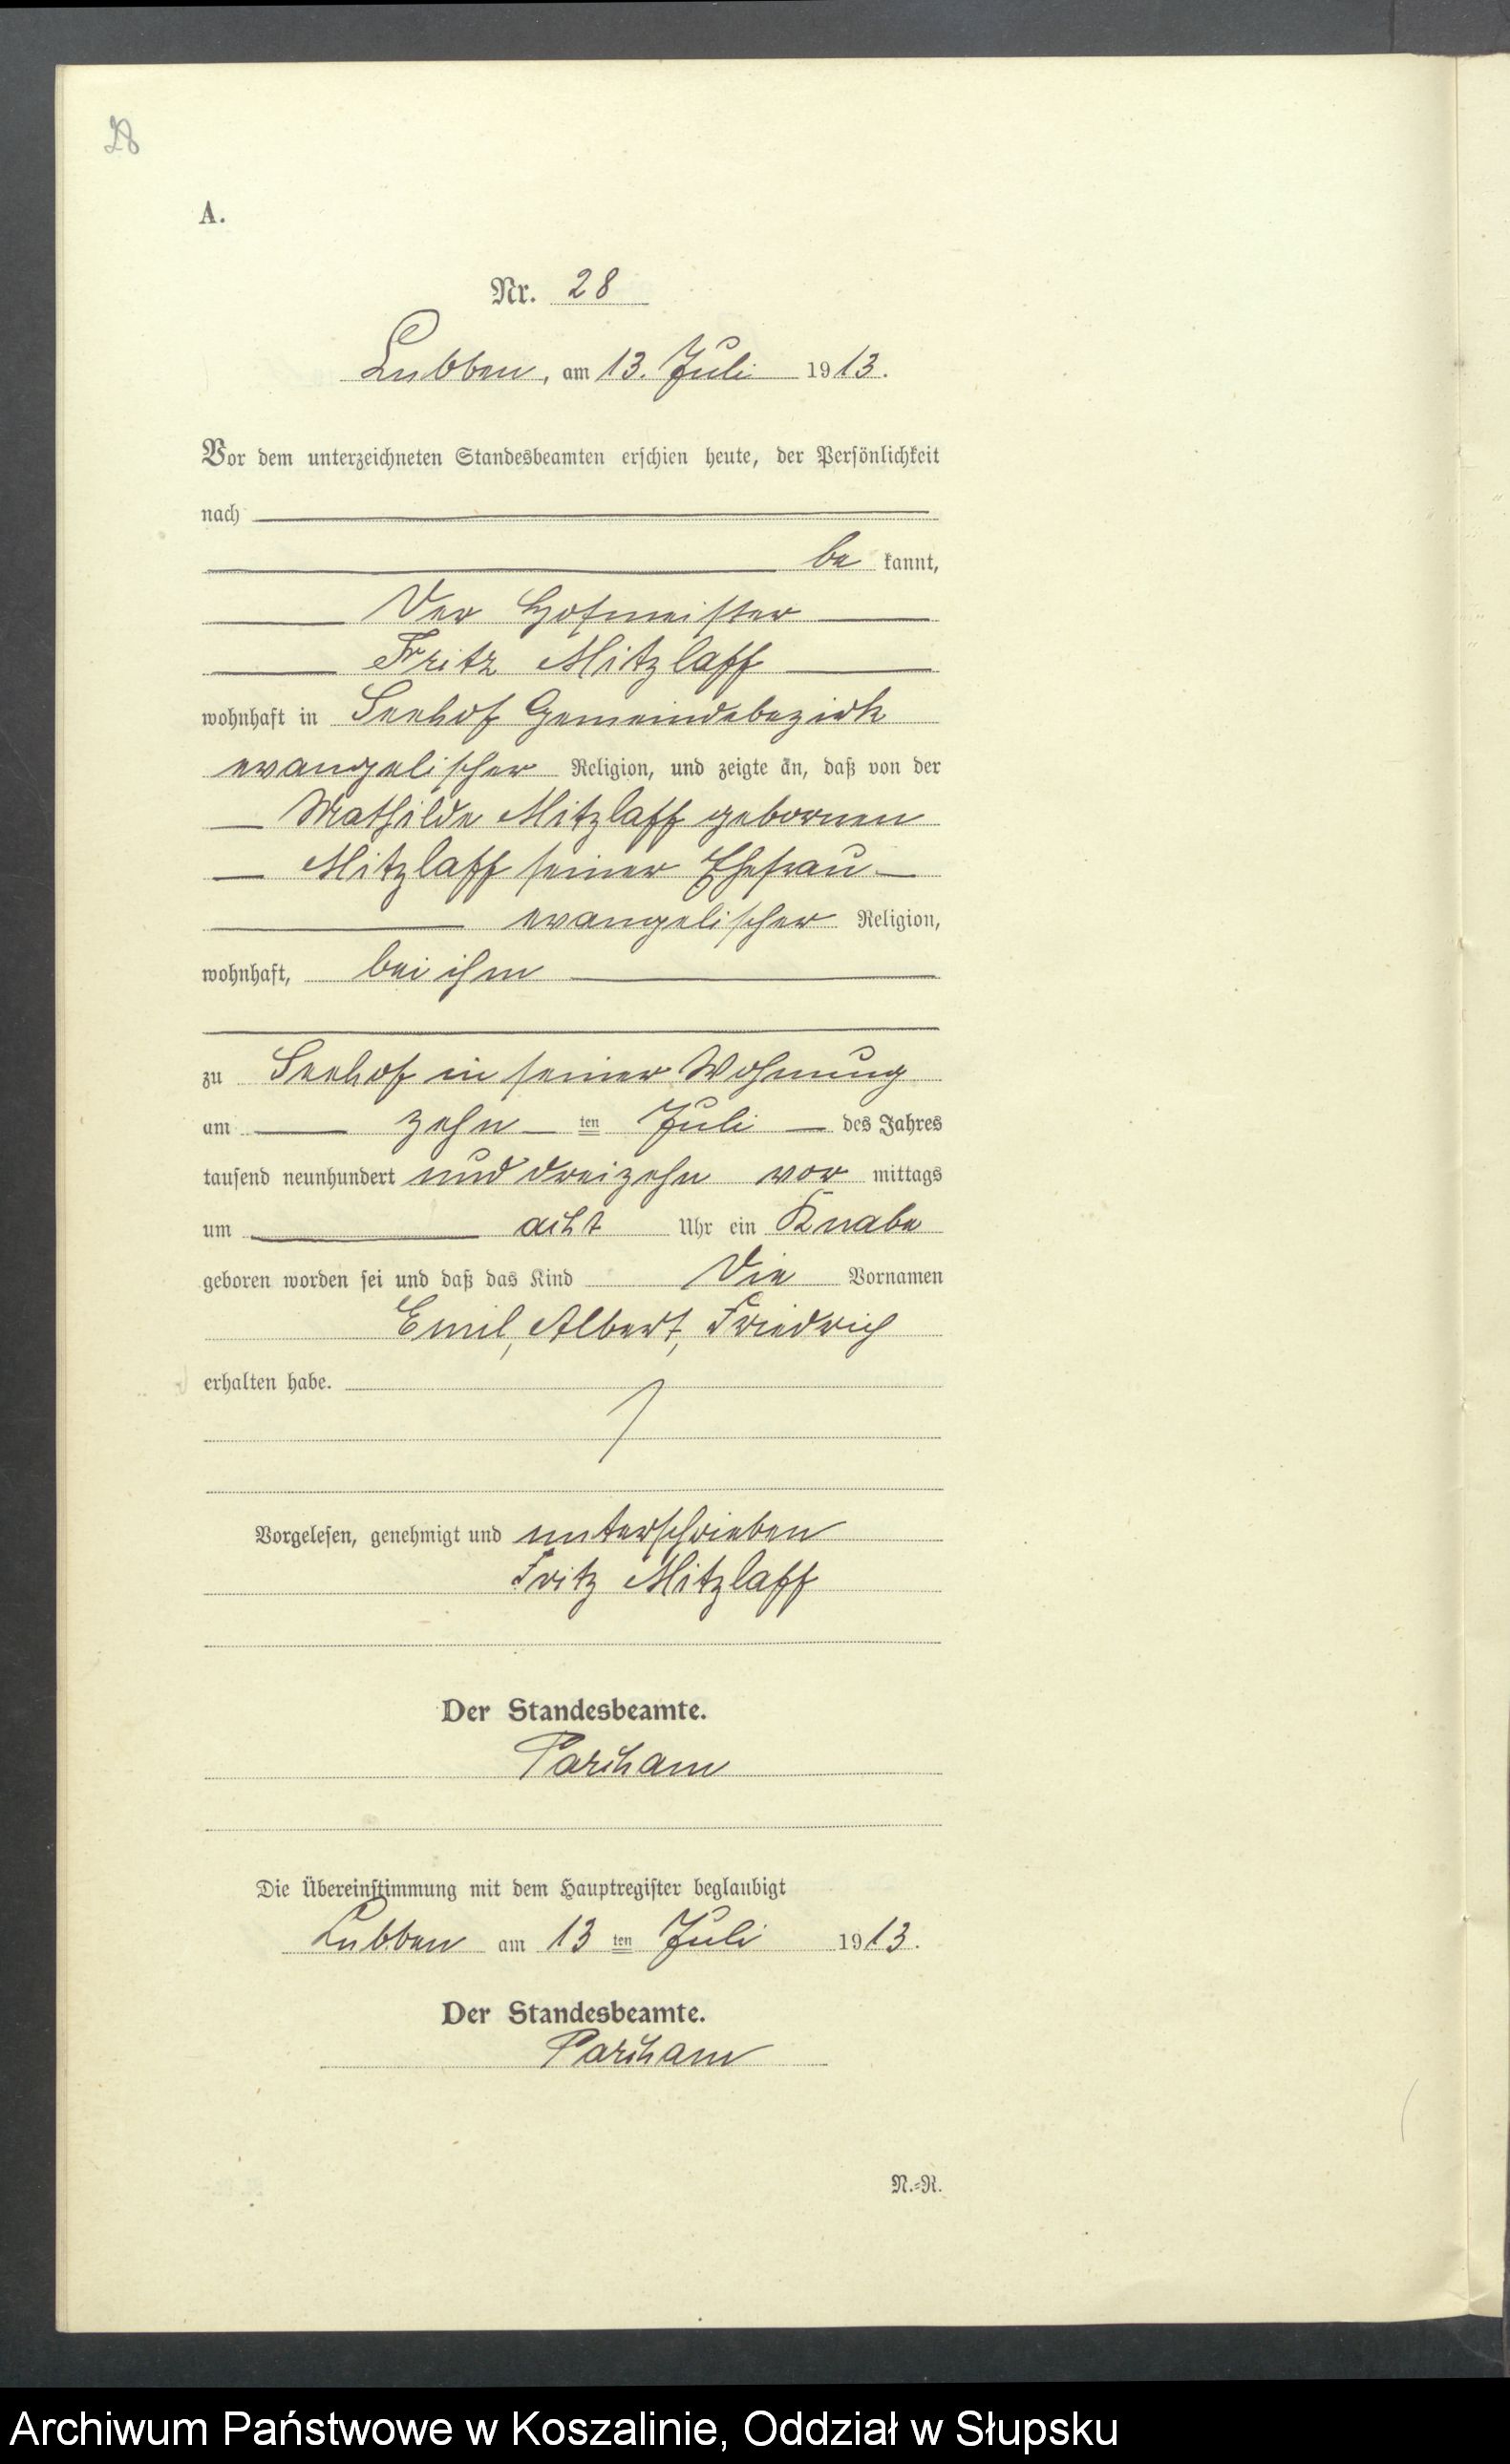 28
A.
Nr. 28
Lubben, am 13. Juli 1913.
Vor dem unterzeichneten Standesbeamten erschien heute, der Persönlichkeit
nach
be kannt,
Der Hofmeister
Fritz Mitzlaff
wohnhaft in Seehof Gemeindebezirk
evangelischer Religion, und zeigte an, daß von der
Mathilde Mitzlaff gebornen
Mitzlaff seiner Ehefrau
evangelischer Religion,
wohnhaft, bei ihm
zu Seehof in seiner Wohnung
am zehn ten Juli des Jahres
tausend neunhundert und dreizehn vor mittags
um acht Uhr ein Knabe
geboren worden sei und daß das Kind die Vornamen
Emil, Albert, Friedrich
erhalten habe.
Vorgelesen, genehmigt und unterschrieben
Fritz Mitzlaff
Der Standesbeamte.
Die Übereinstimmung mit dem Hauptregister beglaubigt
Lubben am 13 ten Juli 1913.
Der Standesbeamte.
N.=R.
Archiwum Państwowe w Koszalinie, Oddział w Słupsku